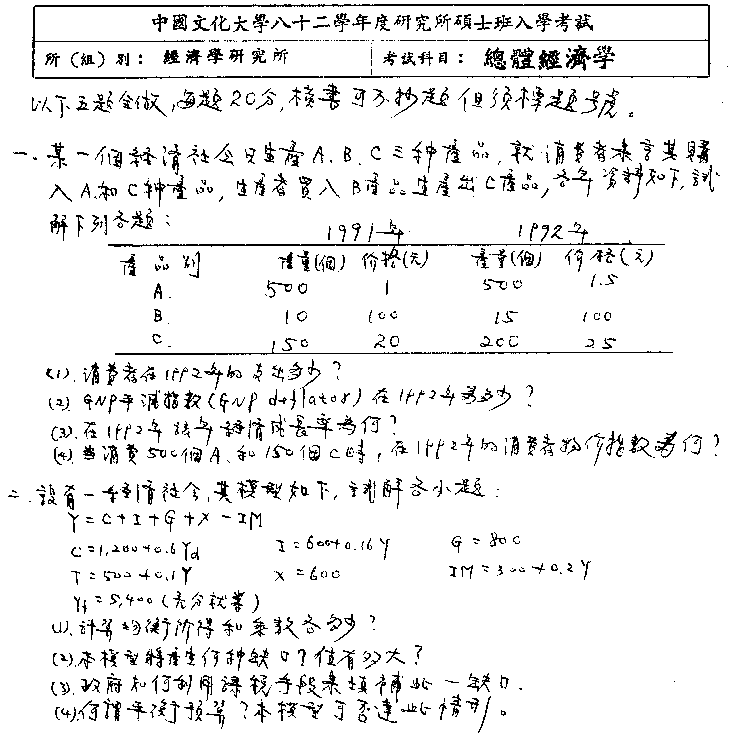 中國文化大學八十二學年度研究所碩士班入學考試
所(組)別: 經濟學研究所 考試科目: 總體經濟學
以下五題全做,每題20分,橫書可不抄題但須標題號。
一、某一個經濟社会只生產A、B、C三种產品,就消費者來言其購
入A和C种產品,生產者買入B產品生產出C產品,各年資料如下,試
解下列各題:
1991年 1992年
產品別 產量(個) 价格(元) 產量(個) 价格(元)
A. 500 1 500 1.5
B. 10 100 15 100
C. 150 20 200 25
(1). 消費者在1992年的支出多少?
(2). GNP平減指数(GNP deflator)在1992年為多少?
(3). 在1992年該年經濟成長率為何?
(4). 当消費500個A和150個C時,在1992年的消費者物价指数為何?
二、設有一經濟社会,其模型如下,試解各小題:
Y=C+I+G+X-IM
C=1,200+0.6Yd I=600+0.16Y G=800
T=500+0.1Y X=600 IM=300+0.2Y
Yf=5,400(充分就業)
(1). 計算均衡所得和乘數各多少?
(2). 本模型將產生何种缺口?值有多大?
(3). 政府如何利用課稅手段來填補此一缺口.
(4). 何謂平衡預算?本模型可否達此情形。